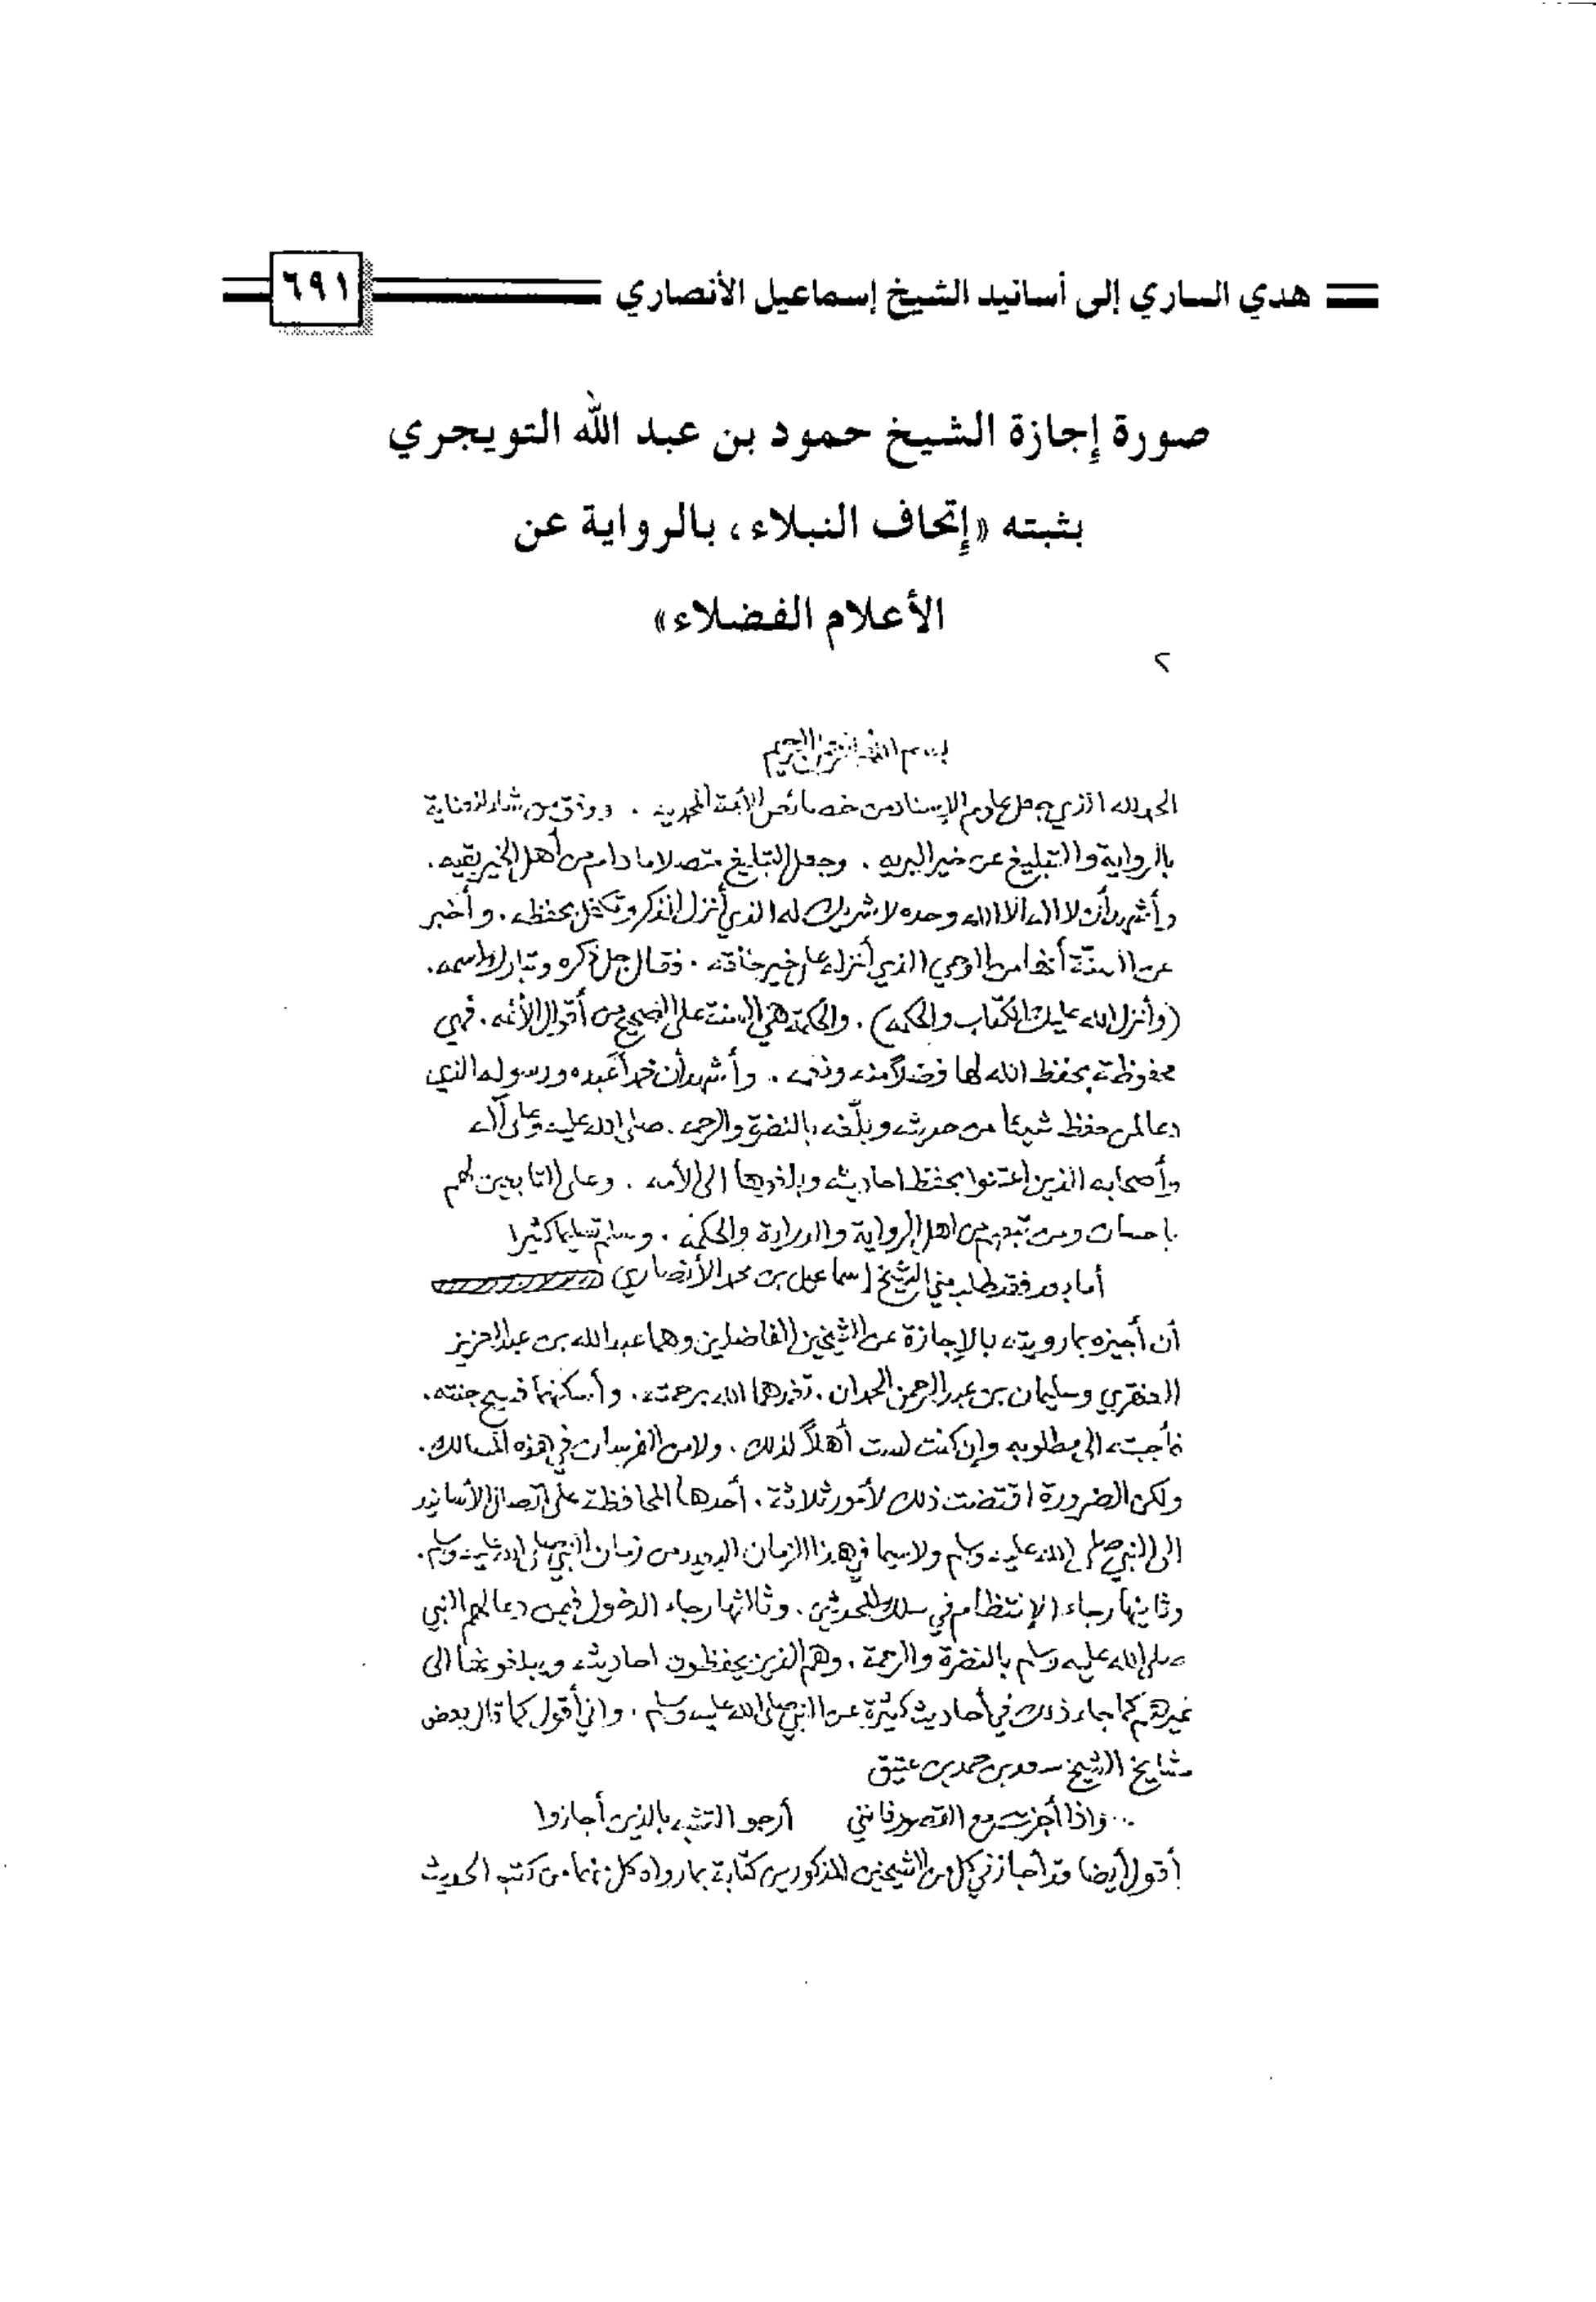 هدي الساري إلى أسانيد الشيخ إسماعيل الأنصاري ٦٩١
صورة إجازة الشيخ حمود بن عبد الله التويجري
بثبته «إتحاف النبلاء، بالرواية عن
الأعلام الفضلاء»
٢
بسم الله الرحمن الرحيم
الحمد لله الذي جعل علوم الإسناد من خصائص الأمة المحمديه . ووفق من شاء لعناية
بالرواية والتبليغ عن خير البريه . وجعل التبليغ متصلا ما دام من أهل الخير بقيه .
وأشهد أن لا اله الا الله وحده لا شريك له الذي أنزل الذكر وتكفل بحفظه . وأخبر
عن السنّة أنها من الوحي الذي أنزله على خير خلقه . فقال جل ذكره وتبارك اسمه .
(وأنزل الله عليك الكتاب والحكمه) . والحكمة هي السنة على الصحيح من أقوال الأئمه . فهي
محفوظة بحفظ الله لها فضلاً منه ونعمه . وأشهد أن محمداً عبده ورسوله الذي
دعا لمن حفظ شيئا من حديثه وبلّغه بالنضرة والرحمه . صلى الله عليه وعلى آله
وأصحابه الذين اعتنوا بحفظ احاديثه وبلغوها الى الأمه . وعلى التابعين لهم
باحسان ومن تبعهم من اهل الرواية والدراية والحكمه . وسلم تسليما كثيرا
أما بعد فقد طلب مني الشيخ إسماعيل بن محمد الأنصاري
أن أجيزه بما رويته بالإجازة عن الشيخين الفاضلين وهما عبد الله بن عبد العزيز
العنقري وسليمان بن عبد الرحمن الحمدان . تغمدهما الله برحمته . وأسكنهما فسيح جنته .
فأجبته الى مطلوبه وإن كنت لست أهلاً لذلك . ولا من الفرسان في هذه المسالك .
ولكن الضرورة اقتضت ذلك لأمور ثلاثة . أحدها المحافظة على اتصال الأسانيد
الى النبي صلى الله عليه وسلم ولا سيما في هذا الزمان البعيد من زمان النبي صلى الله عليه وسلم .
وثانيها رجاء الإنتظام في سلك المحدثين . وثالثها رجاء الدخول فيمن دعا لهم النبي
صلى الله عليه وسلم بالنضرة والرحمة . وهم الذين يحفظون احاديثه ويبلغونها الى
غيرهم كما جاء ذلك في أحاديث كثيرة عن النبي صلى الله عليه وسلم . واني أقول كما قال بعض
مشايخ الشيخ سعد بن حمد بن عتيق
واذا أجزت مع القصور فانني أرجو التشبه بالذين أجازوا
أقول أيضا قد أجازني كل من الشيخين المذكورين كتابة بما رواه كل منهما من كتب الحديث